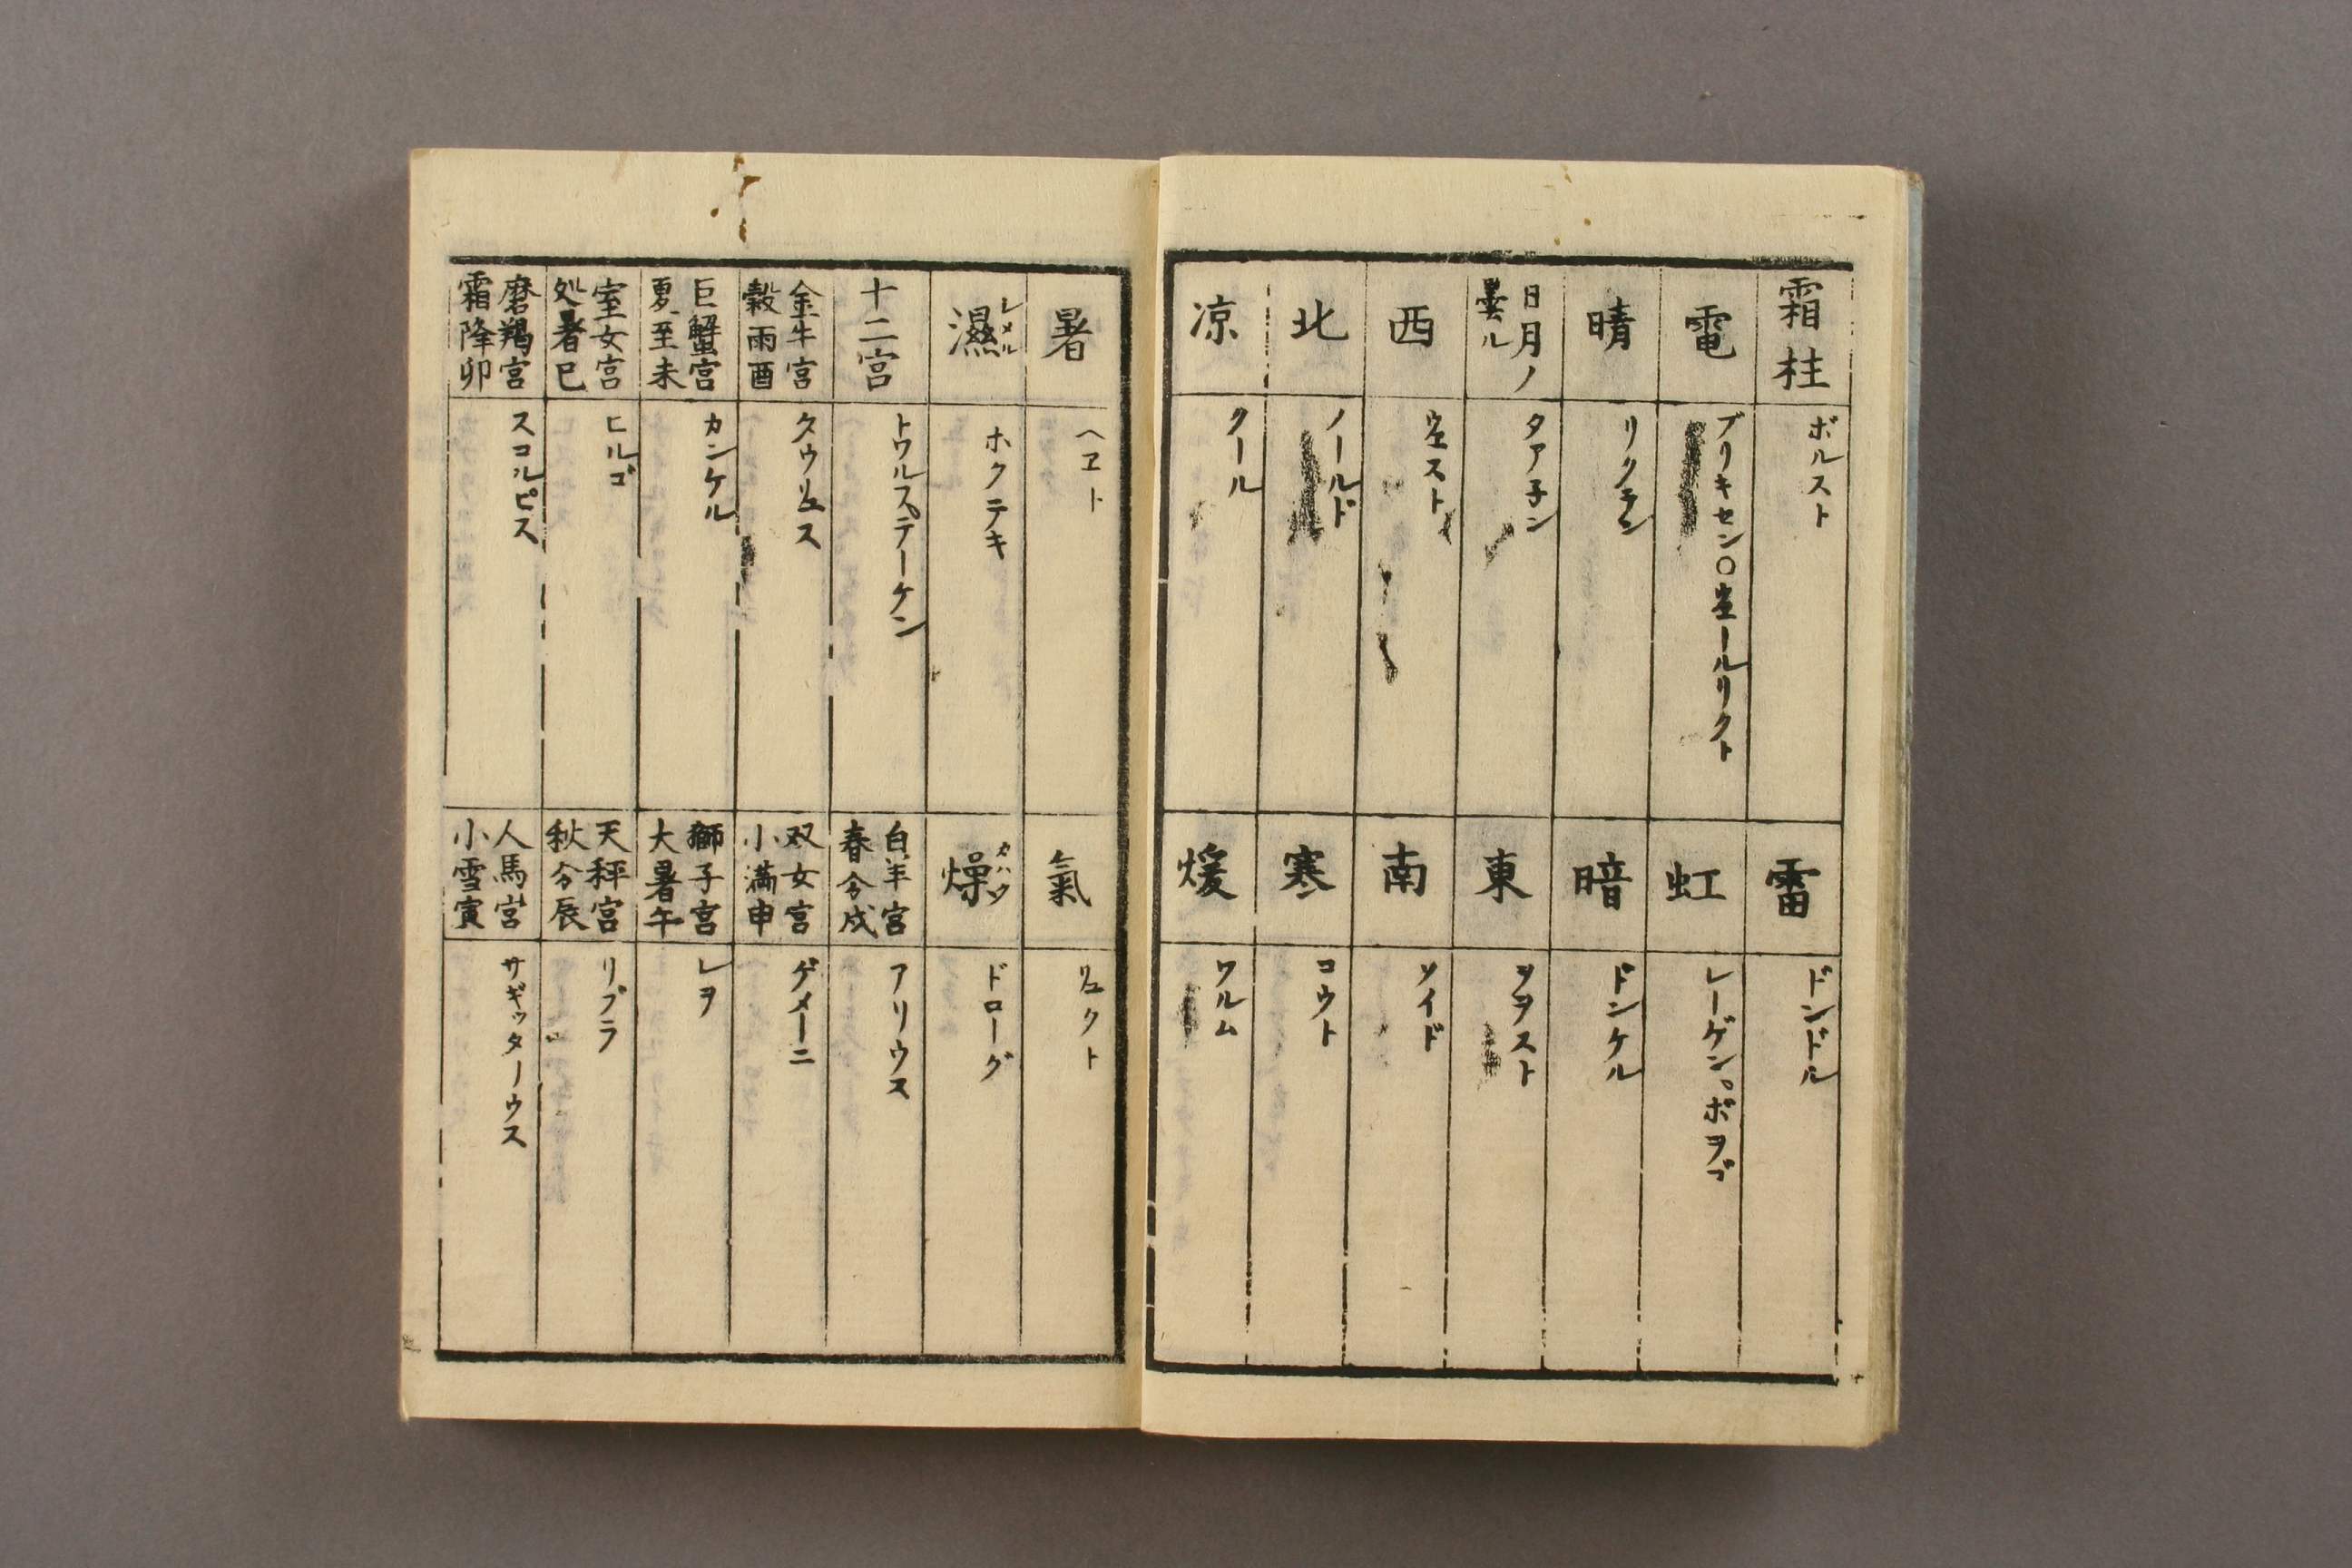 霜柱
ボルスト
雷
ドンドル
電
ブリキセン〇ウヱールリクト
虹
レーゲン。ボヲゴ
晴
リクテン
暗
ドンケル
日月ノ
曇ル
タア子ン
東
ヲヲスト
西
ウヱスト
南
ソイド
北
ノールド
寒
コウト
凉
クール
煖
ワルム
暑
ヘヱト
氣
リュクト
濕
シメル
ホクテキ
燥
カハク
ドローグ
十二宮
トワルステーケン
白羊宮
春分戌
アリウス
金牛宮
穀雨酉
タウリュス
双女宮
小満申
ゲメーニ
巨蟹宮
夏至未
カンケル
獅子宮
大暑午
レヲ
室女宮
処暑巳
ヒルゴ
天秤宮
秋分辰
リブラ
磨羯宮
霜降卯
スコルピス
人馬宮
小雪寅
サギッターウス